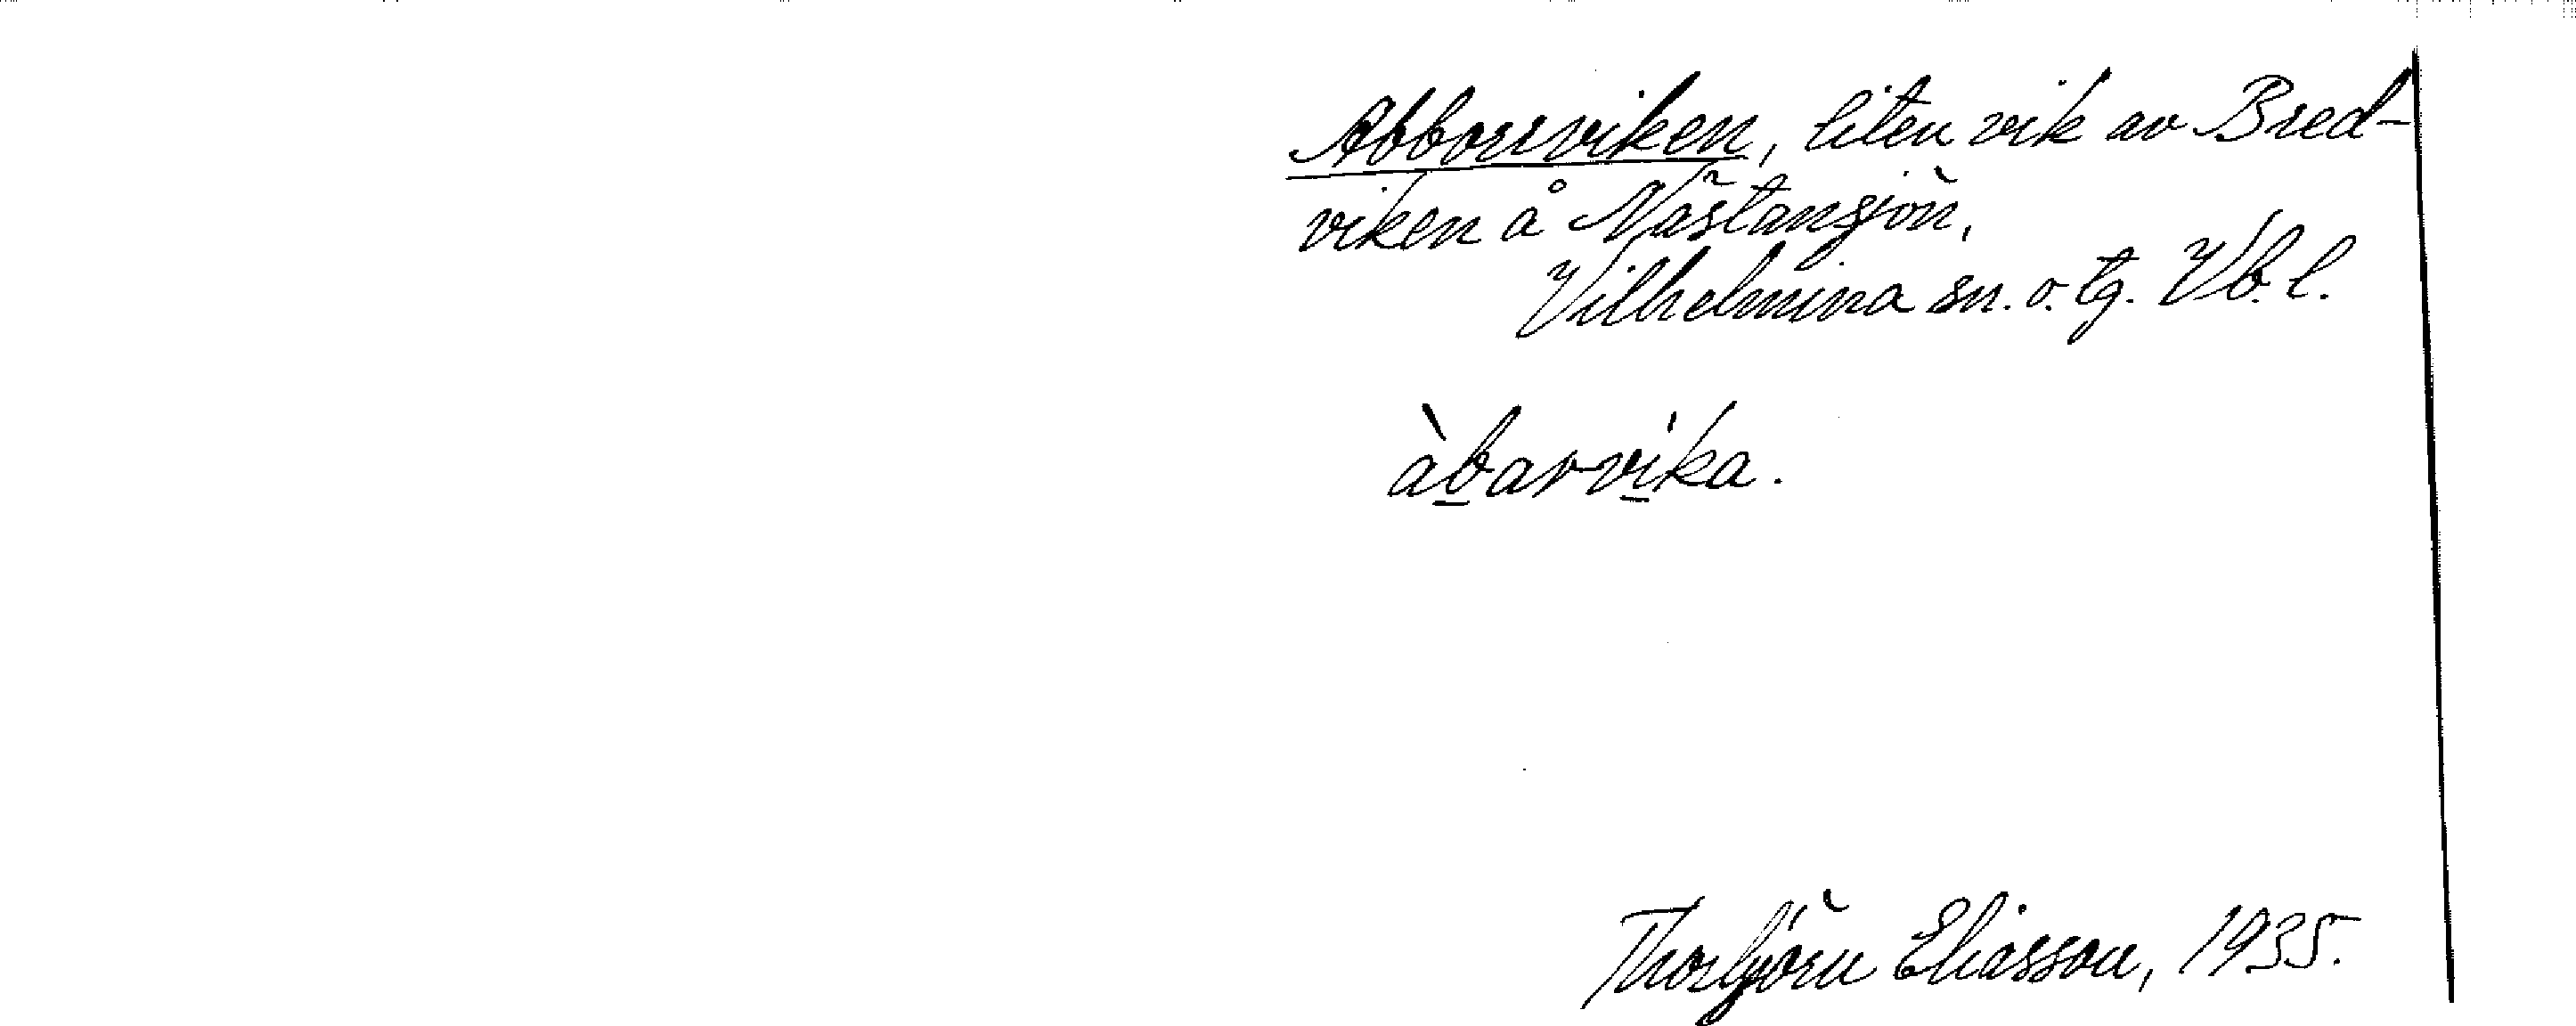 Abborrviken, liten vik av Bred-
viken å Nästansjön,
Vilhelmina sn. o. tg. Vb. l.
àbarvika.
Thorbjörn Eliasson, 1935.